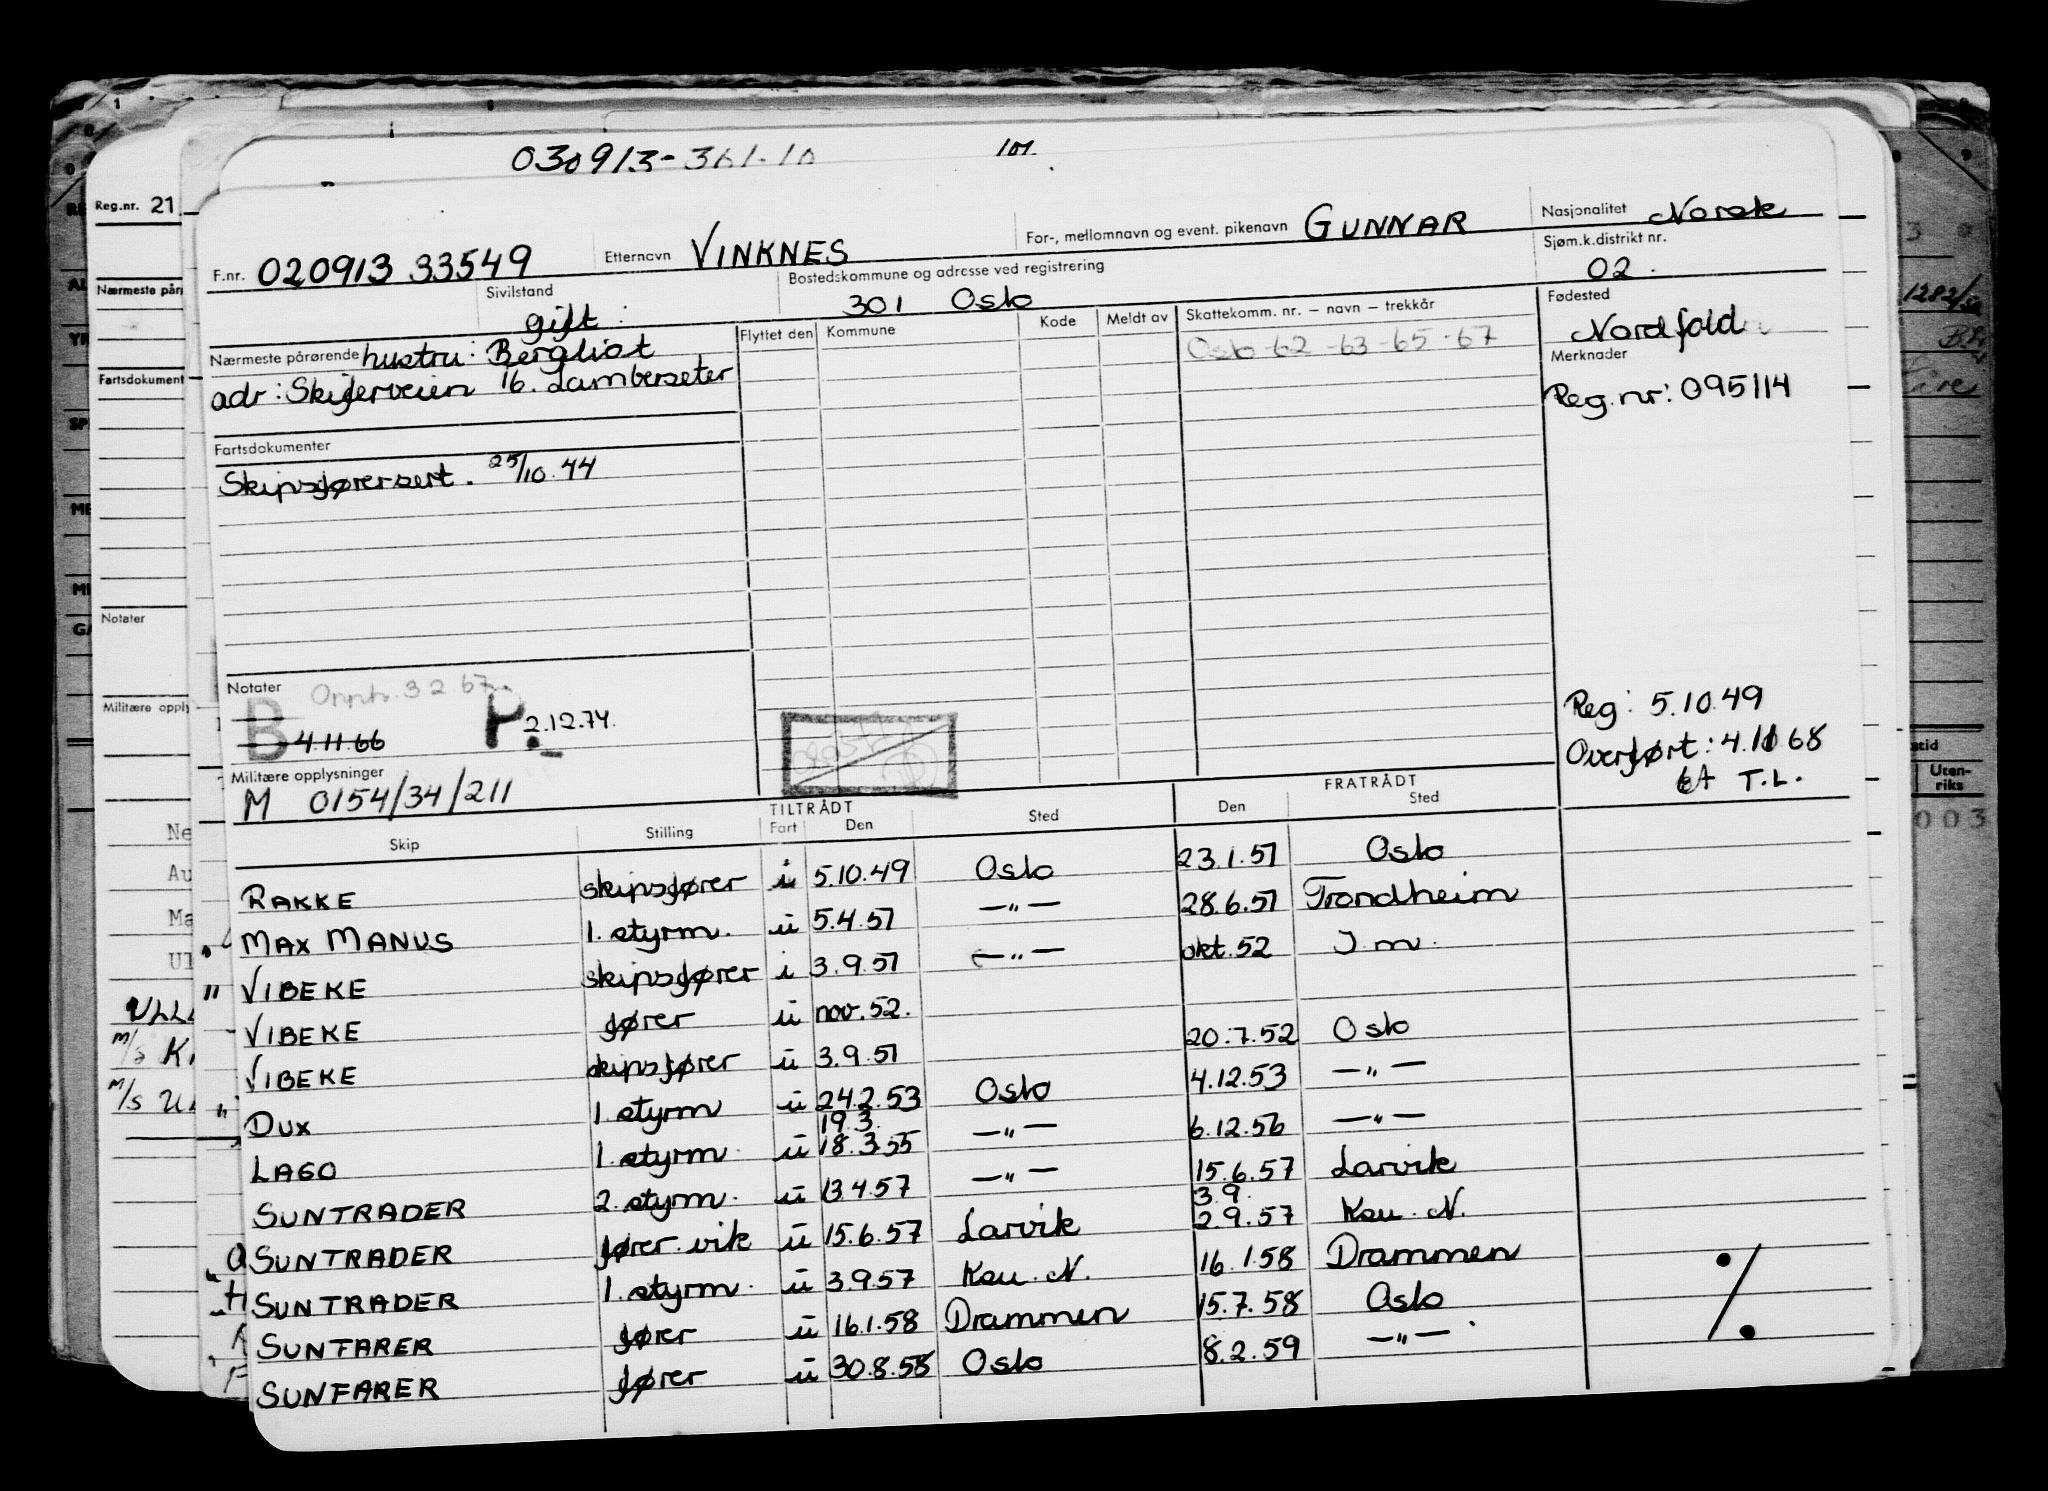 030913-361-10 101.
Reg.nr. 21
F.nr. 020913 33549 Etternavn VINKNES For-, mellomnavn og event. pikenavn GUNNAR Nasjonalitet Norsk
Sivilstand gift Bostedskommune og adresse ved registrering 301 Oslo Sjøm.k.distrikt nr. 02.
Nærmeste pårørende hustru: Bergliot Flyttet den Kommune Kode Meldt av Skattekomm. nr. – navn – trekkår Fødested Nordfold
adr: Skijerveien 16. Lamberseter Oslo -62 -63 -65 -67 Merknader
Reg.nr: 095114
Fartsdokumenter
Skipsførersert. 25/10.44
Notater 3 2 67
B 4.11.66 P 2.12.74.
Reg: 5.10.49
Overført: 4.11 68
T.L.
Militære opplysninger
M 0154/34/211
TILTRÅDT FRATRÅDT
Skip Stilling Fart Den Sted Den Sted
RAKKE skipsfører i 5.10.49 Oslo 23.1.51 Oslo
MAX MANUS 1. styrm. u 5.4.51 —„— 28.6.51 Trondheim
" VIBEKE skipsfører i 3.9.51 —„— okt.52 I m.
VIBEKE fører u nov.52.
VIBEKE skipsfører u 3.9.51 20.7.52 Oslo
" DUX 1. styrm u 24.2.53 Oslo 4.12.53 —„—
19.3.
LAGO 1. styrm u 18.3.55 —„— 6.12.56 —„—
SUNTRADER 2. styrm. u 13.4.57 —„— 15.6.57 Larvik
3.9.
SUNTRADER fører. vik u 15.6.57 Larvik 2.9.57 Keu. N.
SUNTRADER 1. styrm. u 3.9.57 Keu. N. 16.1.58 Drammen
SUNFARER fører u 16.1.58 Drammen 15.7.58 Oslo
SUNFARER fører u 30.8.58 Oslo 8.2.59 —„—
./.
Fartsdokument
Notater
Uten-
riks
003